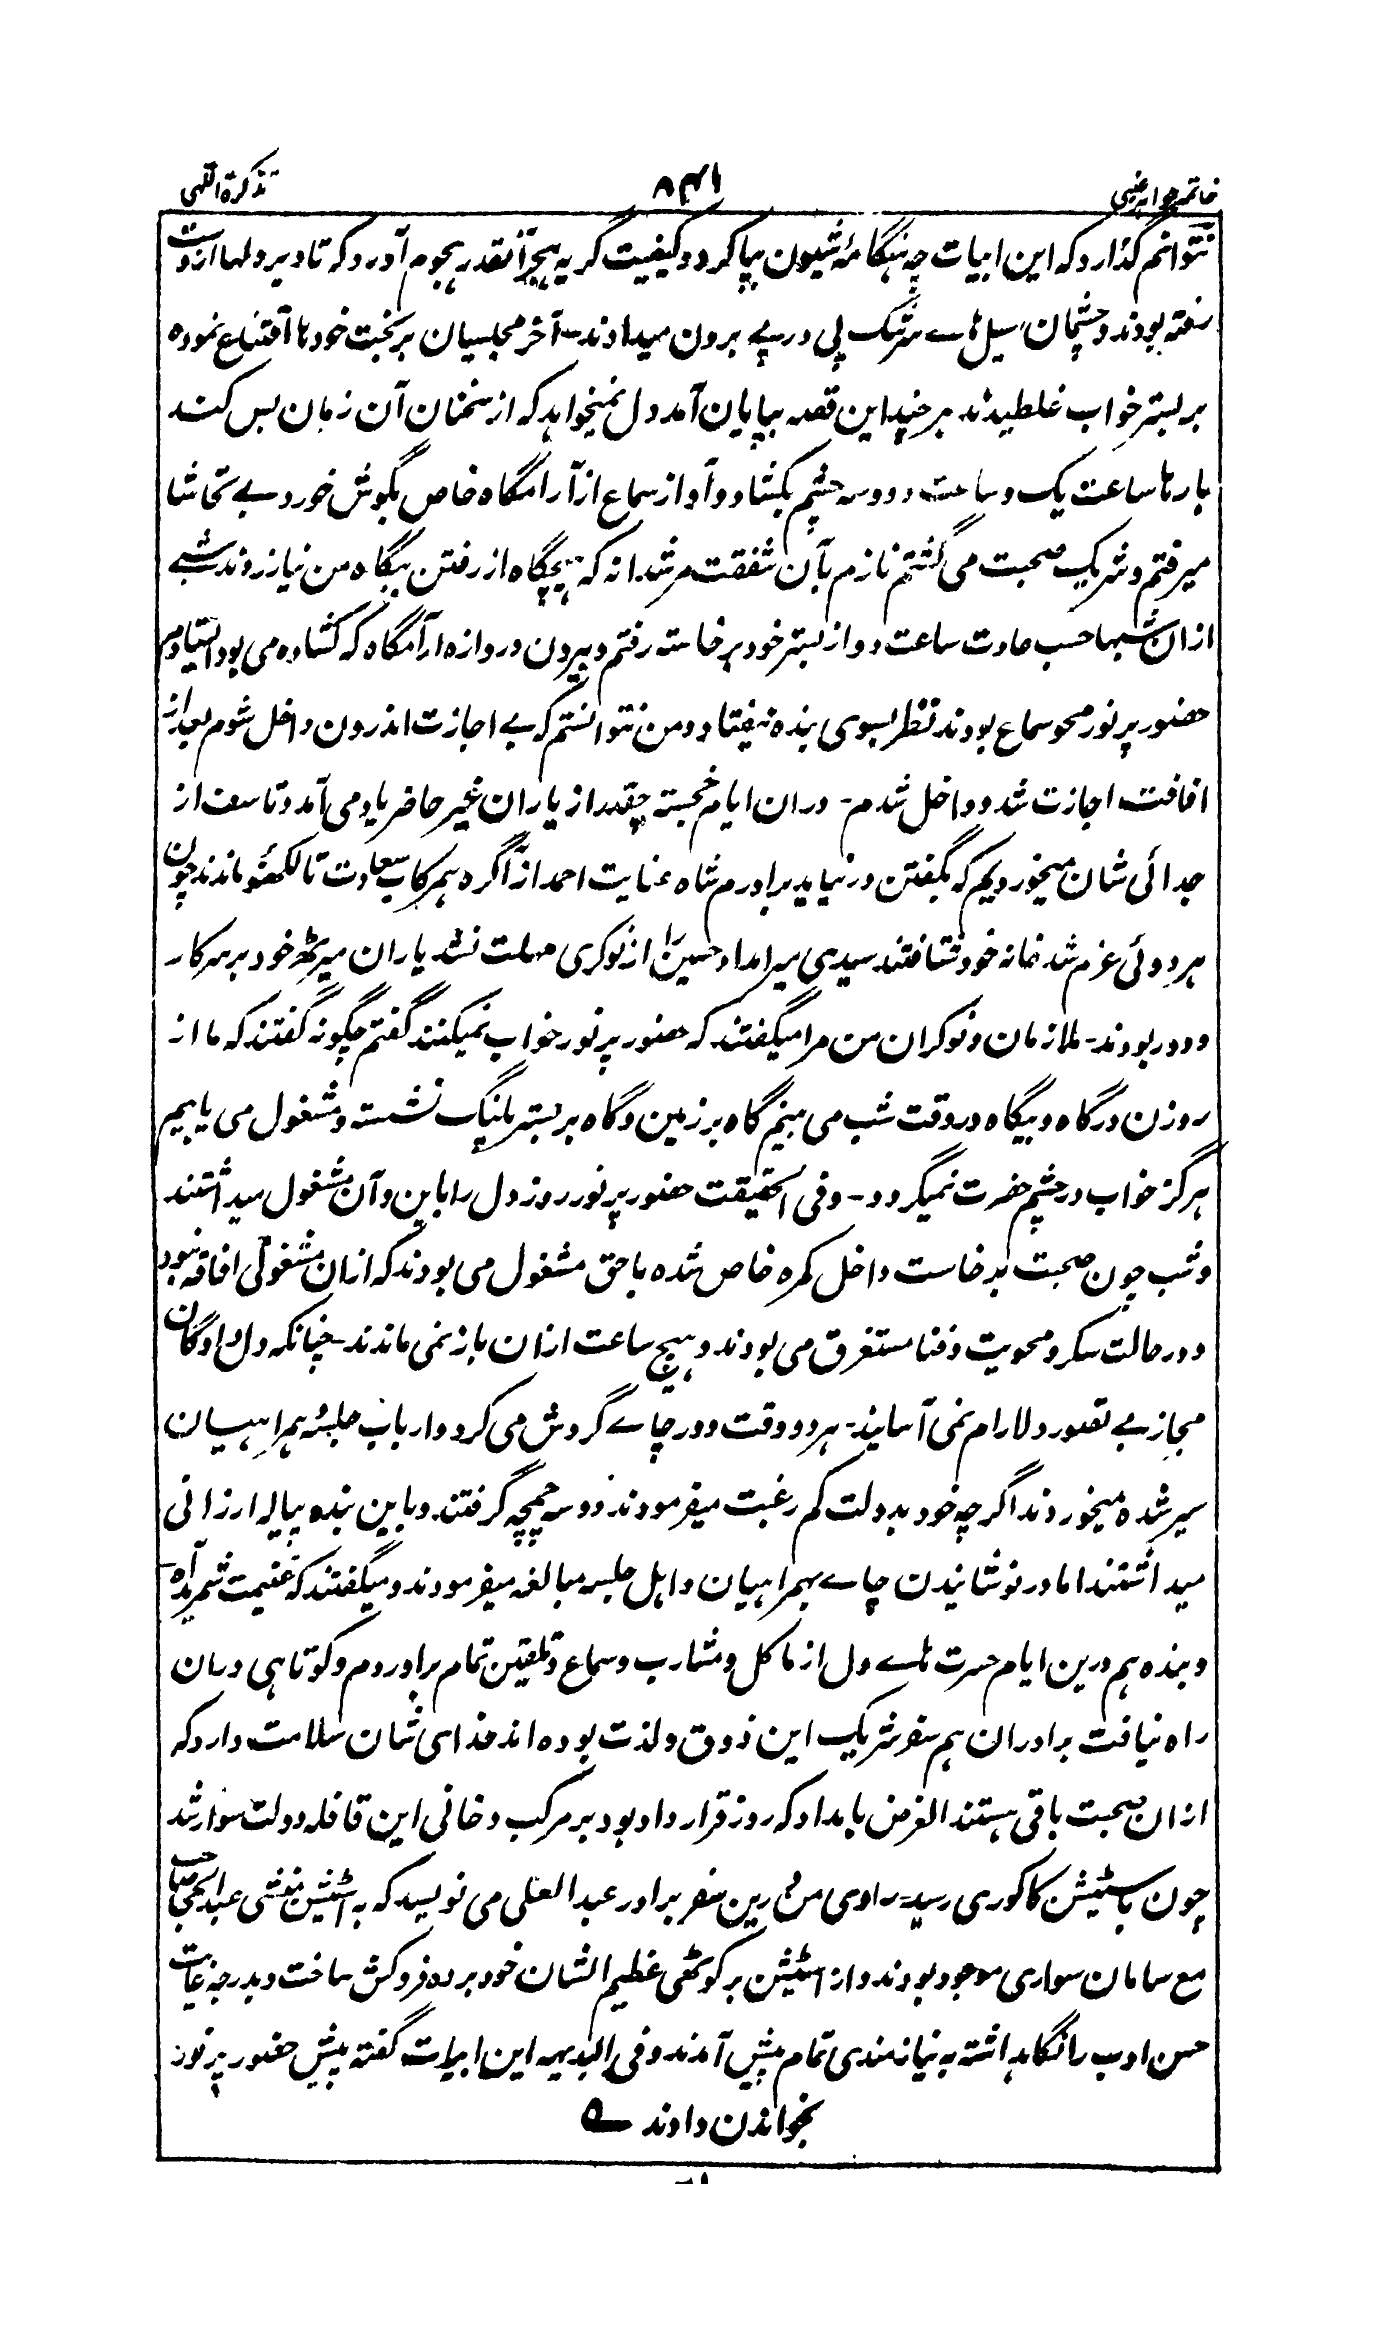 خاتمه جواهر غیبی
۸۴۱
تذکرة اللهی
نتوانم گذارد که این ابیات چه هنگامهٔ شیون بپا کرد و کیفیت گریه هیچ آنقدر هجوم آورد که تا دیر دلها از دست
رفته بودند و چشمان سیل هاے سرشک پی در پے برون میدادند ـ آخر مجلسیان بر بخت خودها اقتناع نموده
بر بستر خواب غلطیدند هر چند این قصه بپایان آمد دل نمیخواهد که از سخنان آن زمان بس کند
بارها ساعت یک و ساعت دو و سه چشم بکشاد و آواز سماع از آرامگاه خاص بگوش خورد بے تحاشا
میرفتم و شریک صحبت می گشتم نازم بآن شفقت مرشدانه که هیچگاه از رفتن بیگاه من نیازردند شبے
ازان شبها حسب عادت ساعت دو از بستر خود برخاسته رفتم و بیرون دروازه آرامگاه که کشاده می بود ایستادم
حضور پر نور محو سماع بودند نظر بسوی بنده نیفتاد و من نتوانستم که بے اجازت اندرون داخل شوم بعد از
افاقت اجازت شد و داخل شدم ـ دران ایام خجسته چقدر از یاران غیر حاضر یاد می آمد و تاسف از
جدائی شان میخوردیم که بگفتن در نیاید برادرم شاه عنایت احمد از آگره همرکاب سعادت تا لکهنؤ ماندند چون
هر دوئی عزم شد خانه خود شتافتند سیدی میر امداد حسین را از نوکری مهلت نشد یاران میرٹھ خود بر سر کار
و دور بودند ـ ملازمان و نوکران من مرا میگفتند که حضور پر نور خواب نمیکنند گفتم چگونه گفتند که ما از
روزن در گاه و بیگاه در وقت شب می بینیم گاه بر زمین و گاه بر بستر پلنگ نشسته و مشغول می یابیم
هرگز خواب در چشم حضرت نمیگردد ـ و فی الحقیقت حضور پر نور روز دل را باین و آن مشغول میداشتند
و شب چون صحبت برخاست داخل کمره خاص شده باحق مشغول می بودند که ازان مشغولی افاقه نبود
و در حالت سکر و محویت و فنا مستغرق می بودند و هیچ ساعت ازان باز نمی ماندند ـ چنانکه دل دادگان
مجاز بے تصور دلارام نمی آسایند ـ هر دو وقت دور چاے گردش می کرد و ارباب جلسهٔ همراهیان
سیر شده میخوردند اگرچه خود بدولت کم رغبت میفرمودند دو سه چمچه گرفتند و باین بنده پیاله ارزانی
میداشتند اما در نوشانیدن چاے بهمراهیان و اهل جلسه مبالغه میفرمودند و میگفتند که غنیمت شمرید آه
و بنده هم درین ایام حسرت هاے دل از ماکل و مشارب و سماع و تلقین تمام برآوردم و کوتاهی دران
راه نیافت برادران هم سفر شریک این ذوق و لذت بوده اند خدای شان سلامت دارد که
ازان صحبت باقی هستند الغرض بامداد که روز قرارداد بود بر مرکب دخانی این قافله دولت سوار شد
چون باسٹیشن کاکوری رسید ـ راوی من درین سفر برادر عبد العلی می نویسد که به اسٹیشن منشی عبد الحی صاحب
مع سامان سواری موجود بودند و از اسٹیشن بر کوٹھی عظیم الشان خود برده فروکش ساخت و بدرجه غایت
حسن ادب را نگاهداشته به نیازمندی تمام پیش آمدند و فی البدیهه این ابیات گفته پیش حضور پر نور
بخواندن دادند ے